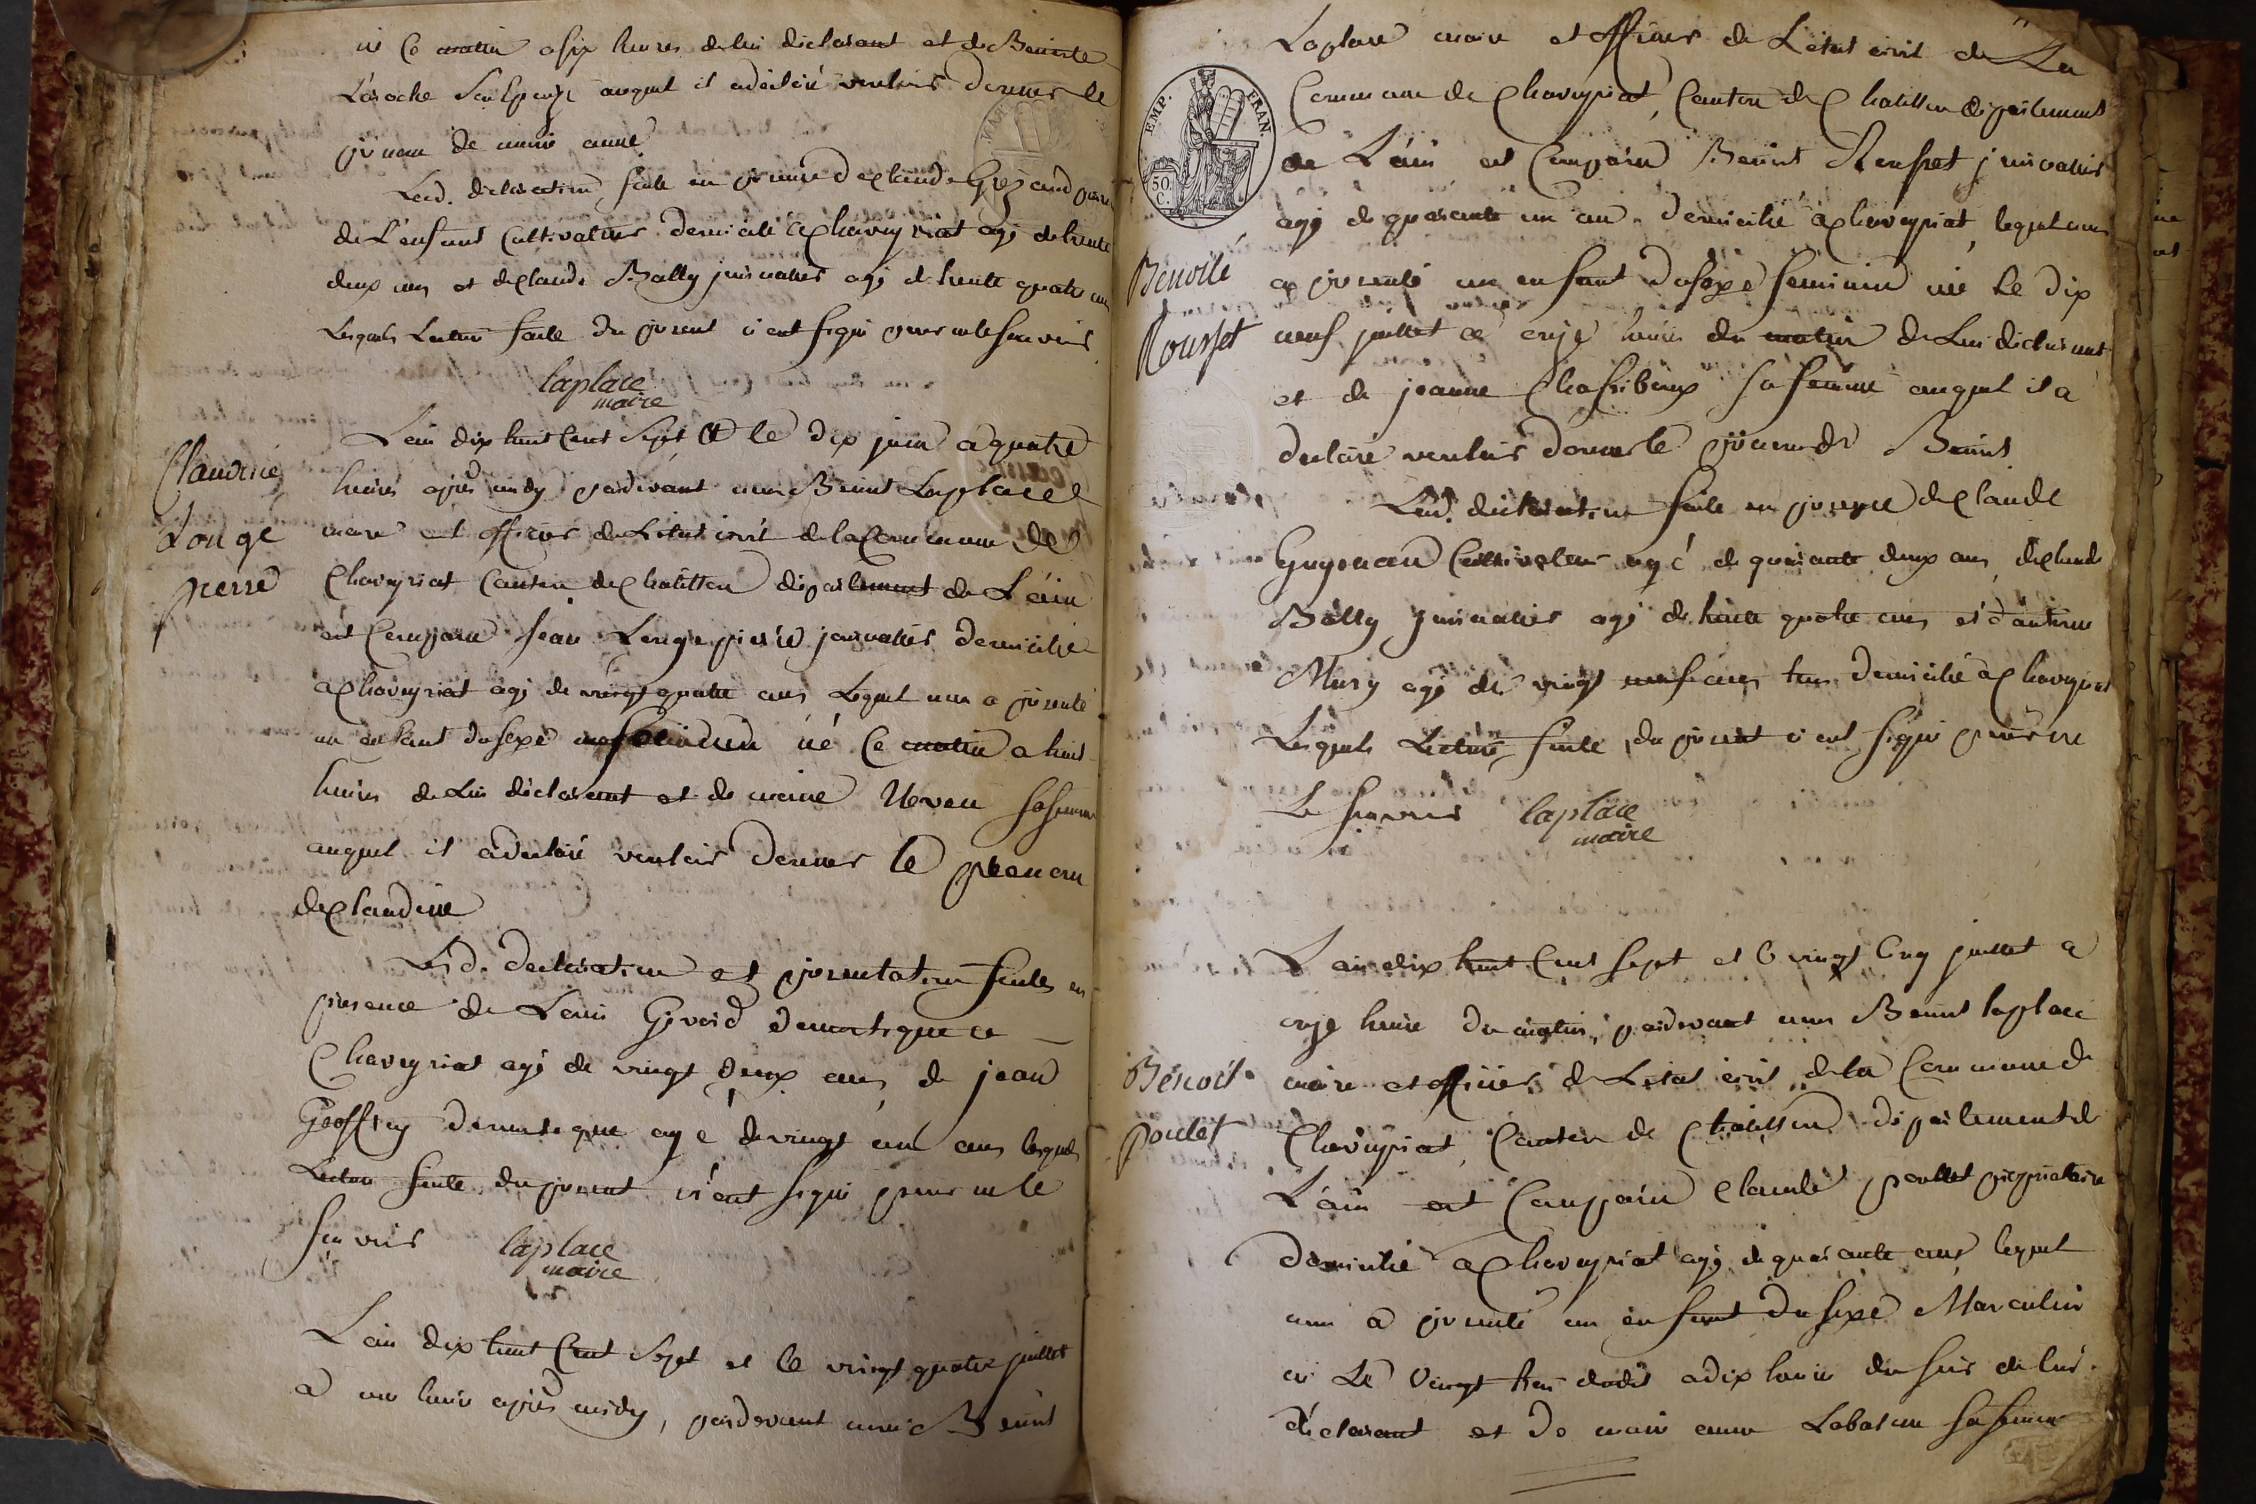 né ce matin a six heures de lui déclarant et de Benoite
Laroche sa auquel il a déclaré vouloir donner le
prénom de marie anne
Lesd. déclaration faite en presence de claude Guy père
de L'enfant Cultivateur domicilié a chaveyriat agé de trente
deux ans et de claude Bally journalier agé de trente quatre ans
Lesquels Lecture faite du present n'ont signé pour ne le scavoir
laplace
maire
Claudine
Longe
pierre
L'an dix huit Cent Sept et le dix juin a quatre
heures après midy pardevant nous Benoit Laplace
maire et officier de L'état civil de la Commune de
Chaveyriat Canton de Chatillon département de L'ain
est Comparu jean Longepierre journalier domicilié
a chaveyriat agé de vingt quatre ans Lequel nous a presenté
un enfant du sexe feminin né Ce matin a huit
heures de Lui déclarant et de marie Neveu sa femme
auquel il a déclaré vouloir donner le prenom
de claudine
Lesd. declaration et presentation faites en
presence de Louis Girard domestique a
Chaveyriat agé de vingt deux ans, de jean
Geoffray domestique agé de vingt ans lesquels
Lecture faite du present n'ont signé pour ne le
scavoir
laplace
maire
L'an dix huit Cent Sept et le vingt quatre juillet
a une heure après midy, pardevant nous Benoit
Laplace maire et officier de L'état civil de La
Commune de Chaveyriat, Canton de Chatillon département
EMP. FRAN.
50.
C.
de L'ain est Comparu Benoit Rousset journalier
agé de quarante un an domicilié a chaveyriat, lequel nous
Benoite
Rousset
a presenté un enfant du sexe feminin né Le dix
neuf juillet a onze heures du matin de Lui déclarant
et de jeanne sa femme auquel il a
declaré vouloir donner le prenom de Benoit
Lesd. déclaration faite en presence de claude
Guyonan Cultivateur agé de quarante deux ans, de claude
Bally journalier agé de trente quatre ans et d'antoine
Mury agé de vingt neuf ans tous domicilié a Chaveyriat
Lesquels Lecture faite du present n'ont signé pour ne
Le scavoir
laplace
maire
L'an dix huit Cent Sept et le vingt Cinq juillet a
onze heure du matin, pardevant nous Benoit laplace
Benoit
poulet
maire et officier de L'état civil de la Commune de
Chaveyriat, Canton de Chatillon département de
L'ain est Comparu Claude poullet propriétaire
domicilié a Chaveyriat agé de quarante ans lequel
nous a presenté un enfant du sexe Masculin
né Le Vingt trois dudit a dix heure du soir de lui
déclarant et de marie anne Labalme sa femme